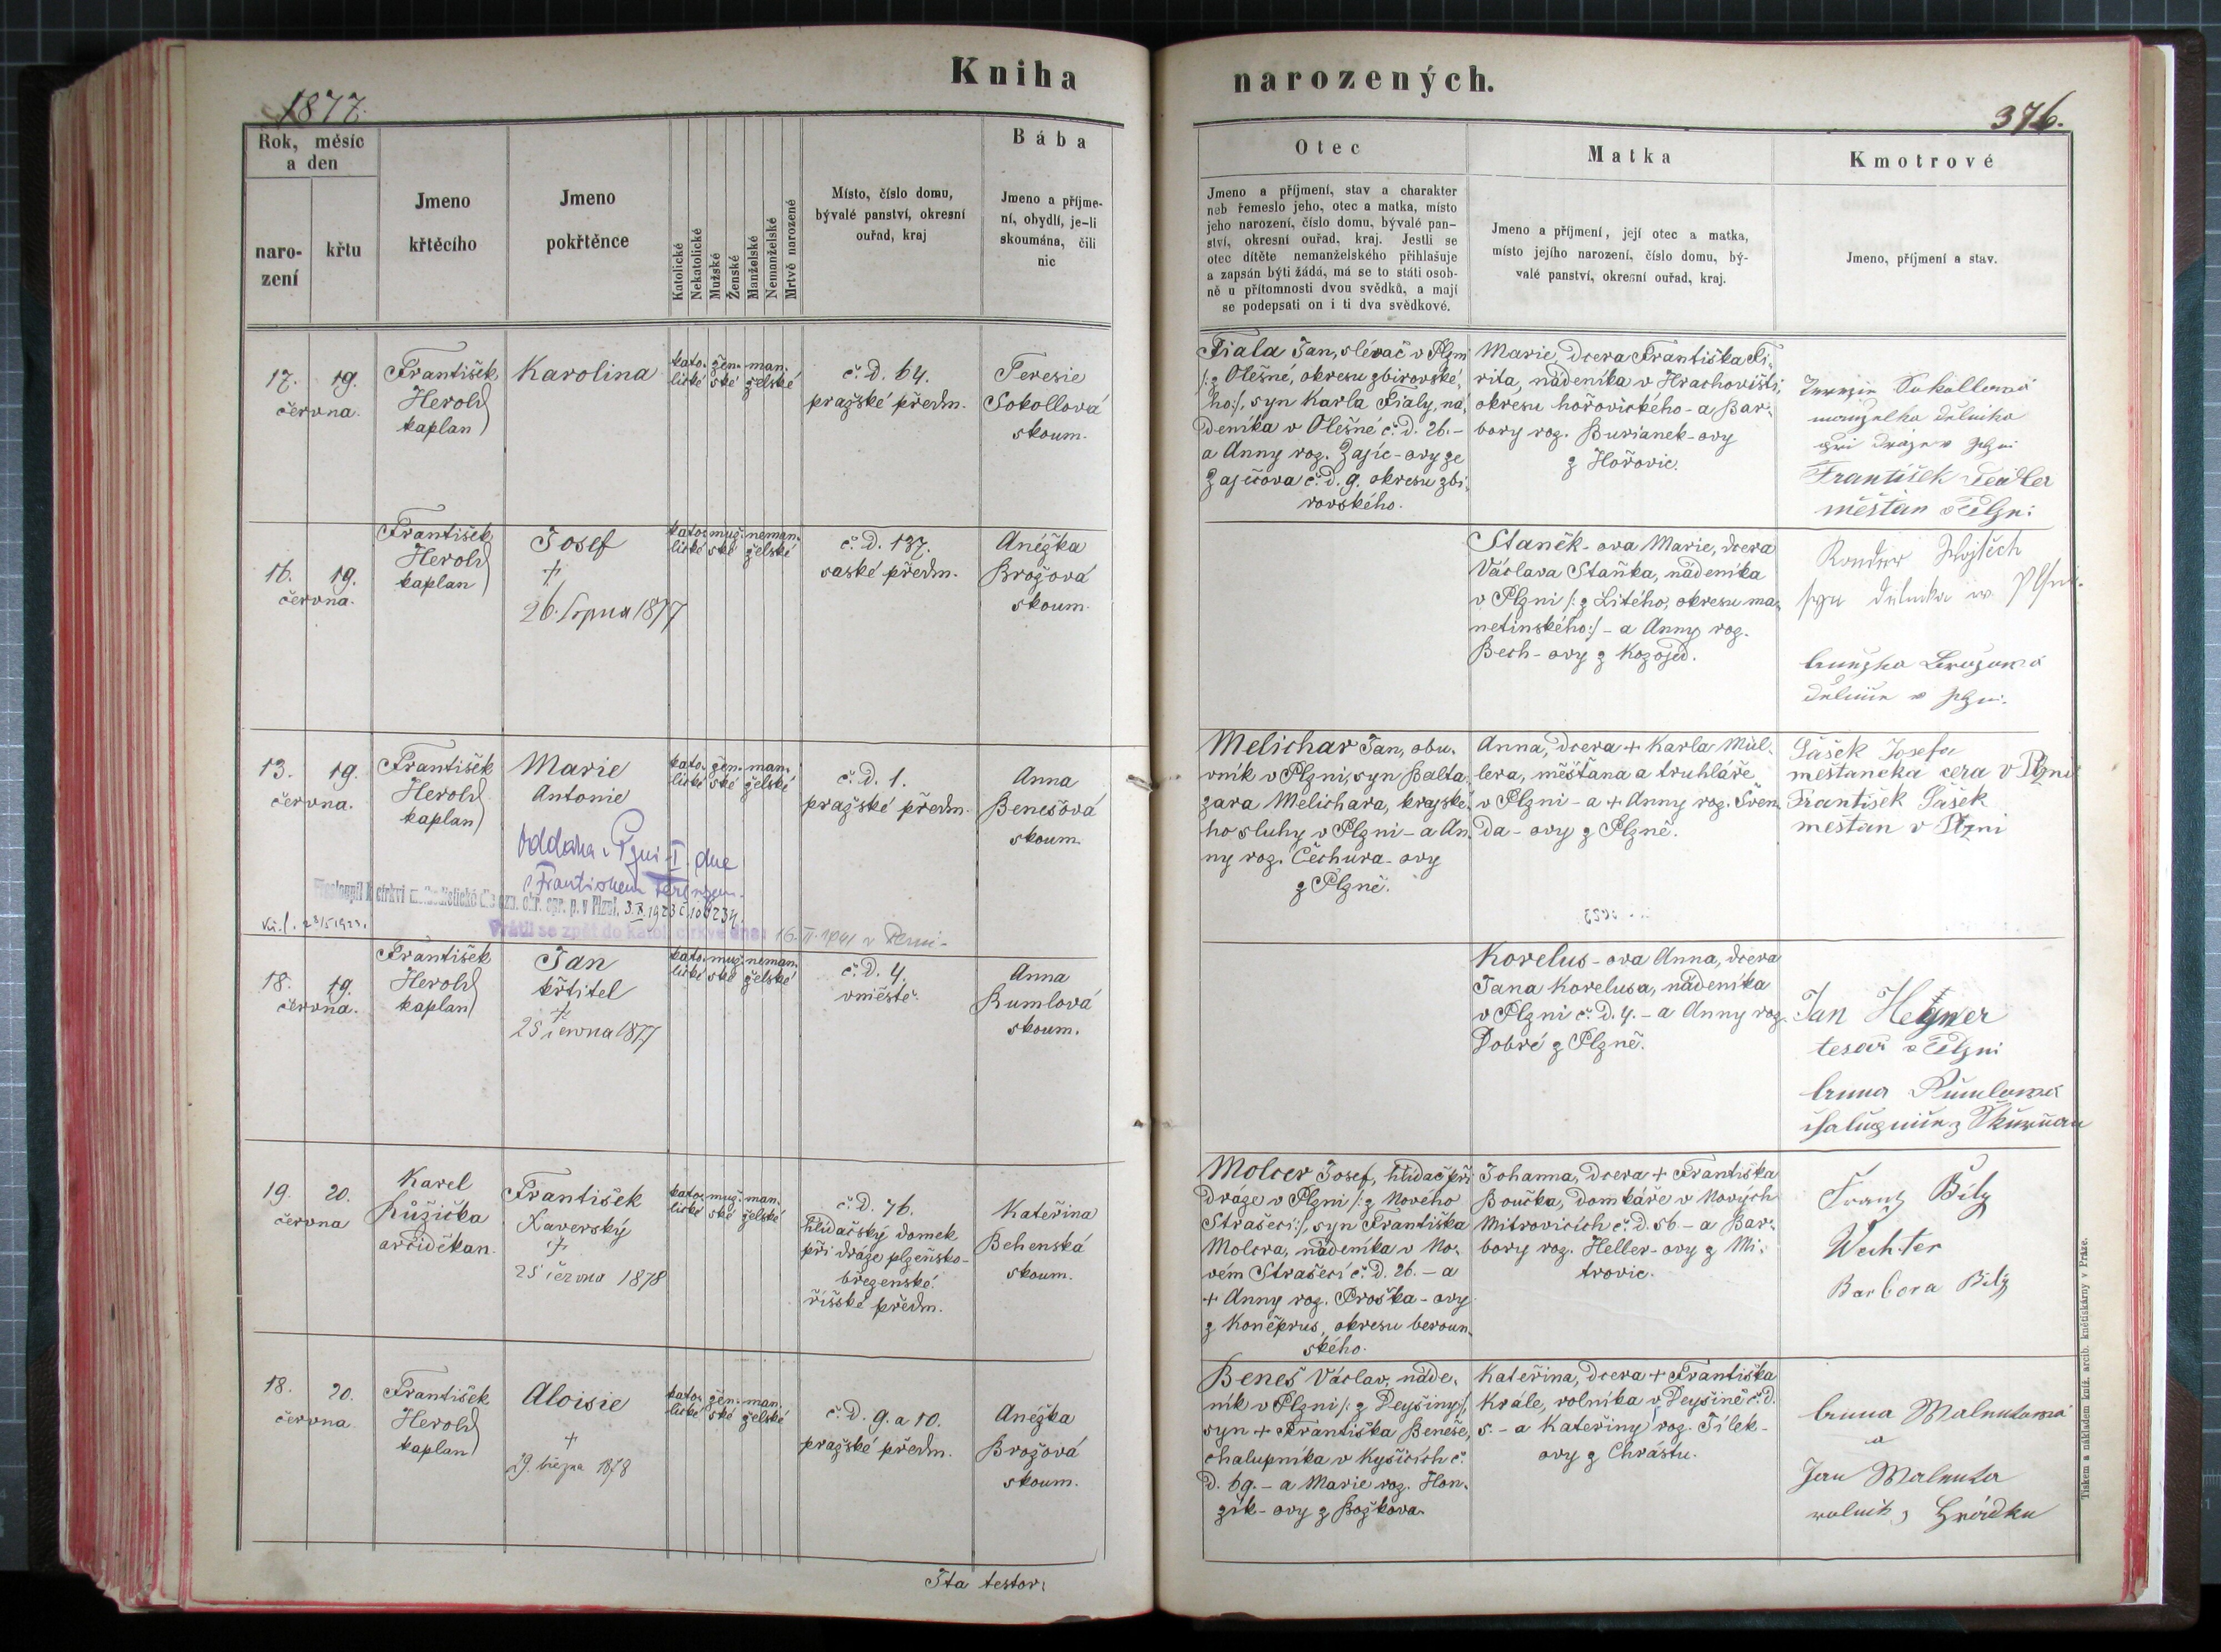 Kniha
narozených.
1877.
376.
Rok, měsíc
a den
naro-
zení
křtu
Jmeno
křtěcího
Jmeno
pokřtěnce
Katolické
Nekatolické
Mužské
Ženské
Manželské
Nemanželské
Mrtvě narozené
Místo, číslo domu,
bývalé panství, okresní
ouřad, kraj
Bába
Jmeno a příjme-
ní, obydlí, je-li
skoumána, čili
nic
Otec
Jmeno a příjmení, stav a charakter
neb řemeslo jeho, otec a matka, místo
jeho narození, číslo domu, bývalé pan-
ství, okresní ouřad, kraj. Jestli se
otec dítěte nemanželského přihlašuje
a zapsán býti žádá, má se to státi osob-
ně u přítomnosti dvou svědků, a mají
se podepsati on i ti dva svědkové.
Matka
Jmeno a příjmení, její otec a matka,
místo jejího narození, číslo domu, bý-
valé panství, okresní ouřad, kraj.
Kmotrové
Jmeno, příjmení a stav.
17. 19.
června.
František
Herold
kaplan
Karolina
kato- žen- man-
lické ské želské
č. D. 64.
pražské předm.
Teresie
Sokollová
skoum.
Fiala Jan, slévač v Plzni
/:z Olešné, okresu zbirovské-
ho:/, syn Karla Fialy, ná-
deníka v Olešné č. D. 26. -
a Anny roz. Zajíc-ovy ze
Zaječova č. D. 9. okresu zbi-
rovského.
Marie, dcera Františka Fi-
rita, nádeníka v Hrachovišti,
okresu hořovického - a Bar-
bory roz. Burianek-ovy
z Hořovic.
Terezie Sokollová
manželka dělníka
při dráze v Plzni
František Fiedler
měštan v Plzni
16. 19.
června.
František
Herold
kaplan
Josef
+
26. srpna 1877
kato- muž- neman-
lické ské želské
č. D. 137.
saské předm.
Anežka
Brožová
skoum.
Staněk-ova Marie, dcera
Václava Staňka, nádeníka
v Plzni /:z Litého, okresu ma-
netínského:/ - a Anny roz.
Bech-ovy z Kozojed.
Vojtěch
dělníka v Plzni.
Anežka Brožová
v Plzni.
13. 19.
června.
František
Herold
kaplan
Marie
Antonie
oddána v Plzni I dne
s Františkem
3. X. 1923 č. 106234.
28/5 1923.
Vrátil se zpět do katol. církve dne: 16. II. 1941 v Plzni-
kato- žen- man-
lické ské želské
č. D. 1.
pražské předm.
Anna
Benešová
skoum.
Melichar Jan, obu-
vník v Plzni, syn Balta-
zara Melichara, krajské-
ho sluhy v Plzni - a An-
ny roz. Čechura-ovy
z Plzně.
Anna, dcera + Karla Mül-
lera, měšťana a truhláře
v Plzni - a + Anny roz. Šven-
da-ovy z Plzně.
Šašek Josefa
meštancka cera v Plzni
František Šašek
mestan v Plzni
18. 19.
června.
František
Herold
kaplan
Jan
křtitel
+
25 června 1877
kato- muž- neman-
lické ské želské
č. D. 4.
v městě.
Anna
Rumlová
skoum.
Korelus-ova Anna, dcera
Jana Korelusa, nádeníka
v Plzni č. D. 4. - a Anny roz.
Dobré z Plzně.
Jan
tesař v Plzni
Anna Rumlová
z Škvrňan
19. 20.
června
Karel
Růžička
arciděkan.
František
Xaverský
+
25 června 1878
kato- muž- man-
lické ské želské
č. D. 76.
hlídačský domek
při dráze plzeňsko-
březenské.
říšské předm.
Kateřina
Behenská
skoum.
Molcer Josef, hlídač při
draze v Plzni /:z Nového
Strašecí:/, syn Františka
Molcra, nádeníka v No-
vém Strašecí č. D. 26. - a
+ Anny roz. Proška-ovy
z Koněprus, okresu beroun-
ského.
Johanna, dcera + Františka
Boučka, domkáře v Nových
Mitrovicích č. D. 56. - a Bar-
bory roz. Heller-ovy z Mi-
trovic.
Franz Bílý
Wechter
Barbora Bílý
18. 20.
června
František
Herold
kaplan
Aloisie
+
29. března 1878
kato- žen- man-
lické ské želské
č. D. 9. a 10.
pražské předm.
Anežka
Brožová
skoum.
Beneš Václav, náde-
ník v Plzni /:z Deyšiny:/,
syn + Františka Beneše,
chalupníka v Kyšicích č.
D. 69. - a Marie roz. Hon-
zík-ovy z Božkova.
Kateřina, dcera + Františka
Krále, rolníka v Deyšině č. D.
5. - a Kateřiny roz. Jílek-
ovy z Chrástu.
Anna
a
Jan
rolník z Hrádku
Ita testor:
Tiskem a nákladem kníž. arcib. knětiskárny v Praze.